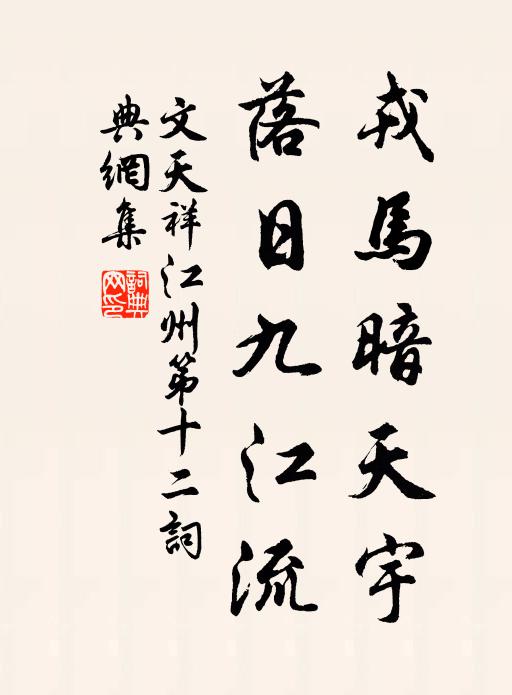 戎馬暗天宇
落日九江流
文天祥江州第十二詞
典網集
詞典網印